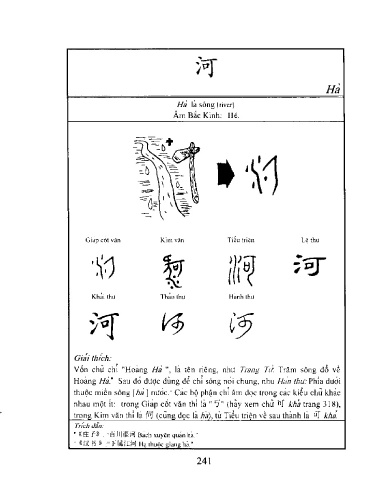 河
Hà
Hà là sông (river)
Âm Bắc Kinh: Hé.
Giáp cốt văn Kim văn Tiểu triện Lệ thư
河
Khải thư Thảo thư Hành thư
河
Giải thích:
Vốn chữ chỉ "Hoàng Hà", là tên riêng, như Trang Tử: Trăm sông đổ về
Hoàng Hà." Sau đó được dùng để chỉ sông nói chung, như Hán thư: Phía dưới
thuộc miền sông [hà] nước. Các bộ phận chỉ âm đọc trong các kiểu chữ khác
nhau một ít: trong Giáp cốt văn thì là "丂" (hãy xem chữ 可 khả trang 318),
trong Kim văn thì là 何 (cũng đọc là hà), từ Tiểu triện về sau thành là 可 khả.
Trích dẫn:
《庄子》: "百川灌河 Bách xuyên quán hà."
《汉书》: "下属江河 Hạ thuộc giang hà."
241